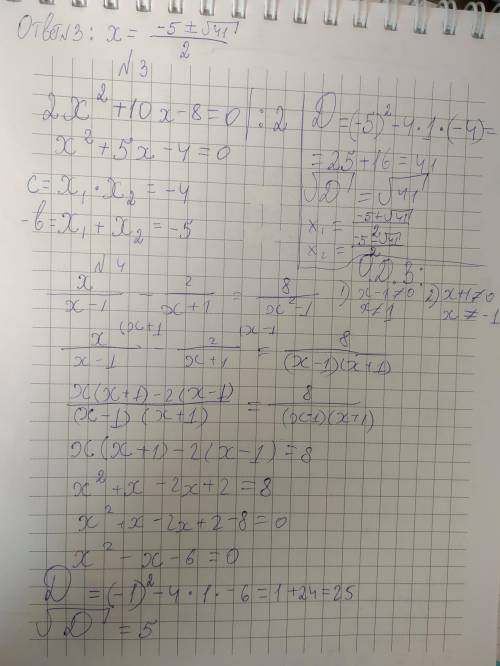 Ответ№3: x = (-5 ± √41) / 2
№3
2x² + 10x - 8 = 0 | : 2
x² + 5x - 4 = 0
c = x₁ · x₂ = -4
-b = x₁ + x₂ = -5
D = (-5)² - 4 · 1 · (-4) =
= 25 + 16 = 41
√D = √41
x₁ = (-5 + √41) / 2
x₂ = (-5 - √41) / 2
№4
x / (x - 1) - 2 / (x + 1) = 8 / (x² - 1)
О.Д.З:
1) x - 1 ≠ 0
x ≠ 1
2) x + 1 ≠ 0
x ≠ -1
x (x+1 / (x - 1) - 2 (x-1 / (x + 1) = 8 / ((x - 1)(x + 1))
(x(x + 1) - 2(x - 1)) / ((x - 1)(x + 1)) = 8 / ((x - 1)(x + 1))
x(x + 1) - 2(x - 1) = 8
x² + x - 2x + 2 = 8
x² + x - 2x + 2 - 8 = 0
x² - x - 6 = 0
D = (-1)² - 4 · 1 · -6 = 1 + 24 = 25
√D = 5